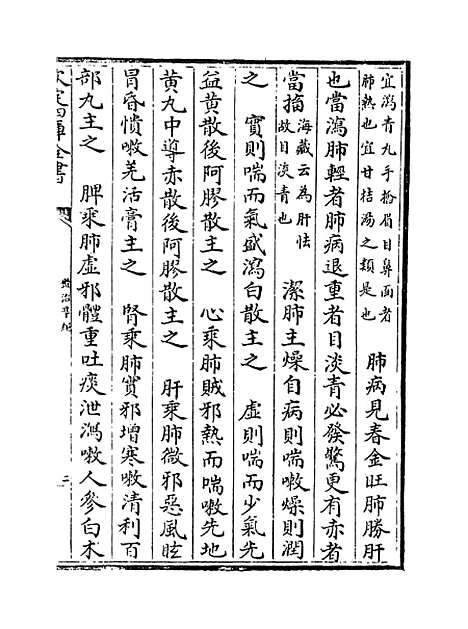 宜瀉青丸手掐眉目鼻面者
肺熱也宜甘桔湯之類是也
肺病見春金旺肺勝肝
也當瀉肺輕者肺病退重者目淡青必發驚更有赤者
當搐
海藏云為肝怯
故目淡青也
潔肺主燥自病則喘嗽燥則潤
之　實則喘而氣盛瀉白散主之　虛則喘而少氣先
益黃散後阿膠散主之　心乘肺賊邪熱而喘嗽先地
黃丸中導赤散後阿膠散主之　肝乘肺微邪惡風眩
冒昏憒嗽羗活膏主之　腎乘肺實邪增寒嗽清利百
部丸主之　脾乘肺虛邪體重吐痰泄瀉嗽人參白朮
欽定四庫全書
證治準繩
三